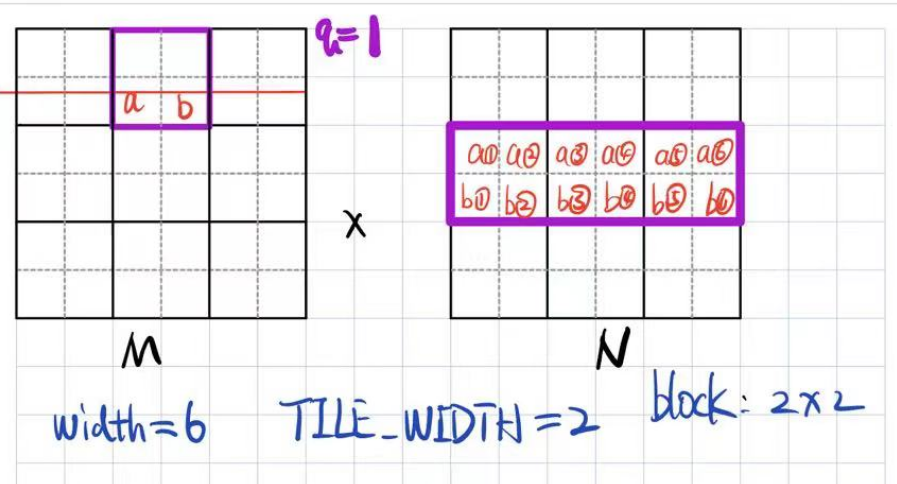 q=1
a b
a① a② a③ a④ a⑤ a⑥
b① b② b③ b④ b⑤ b⑥
x
M N
width=6 TILE_WIDTH=2 block: 2x2